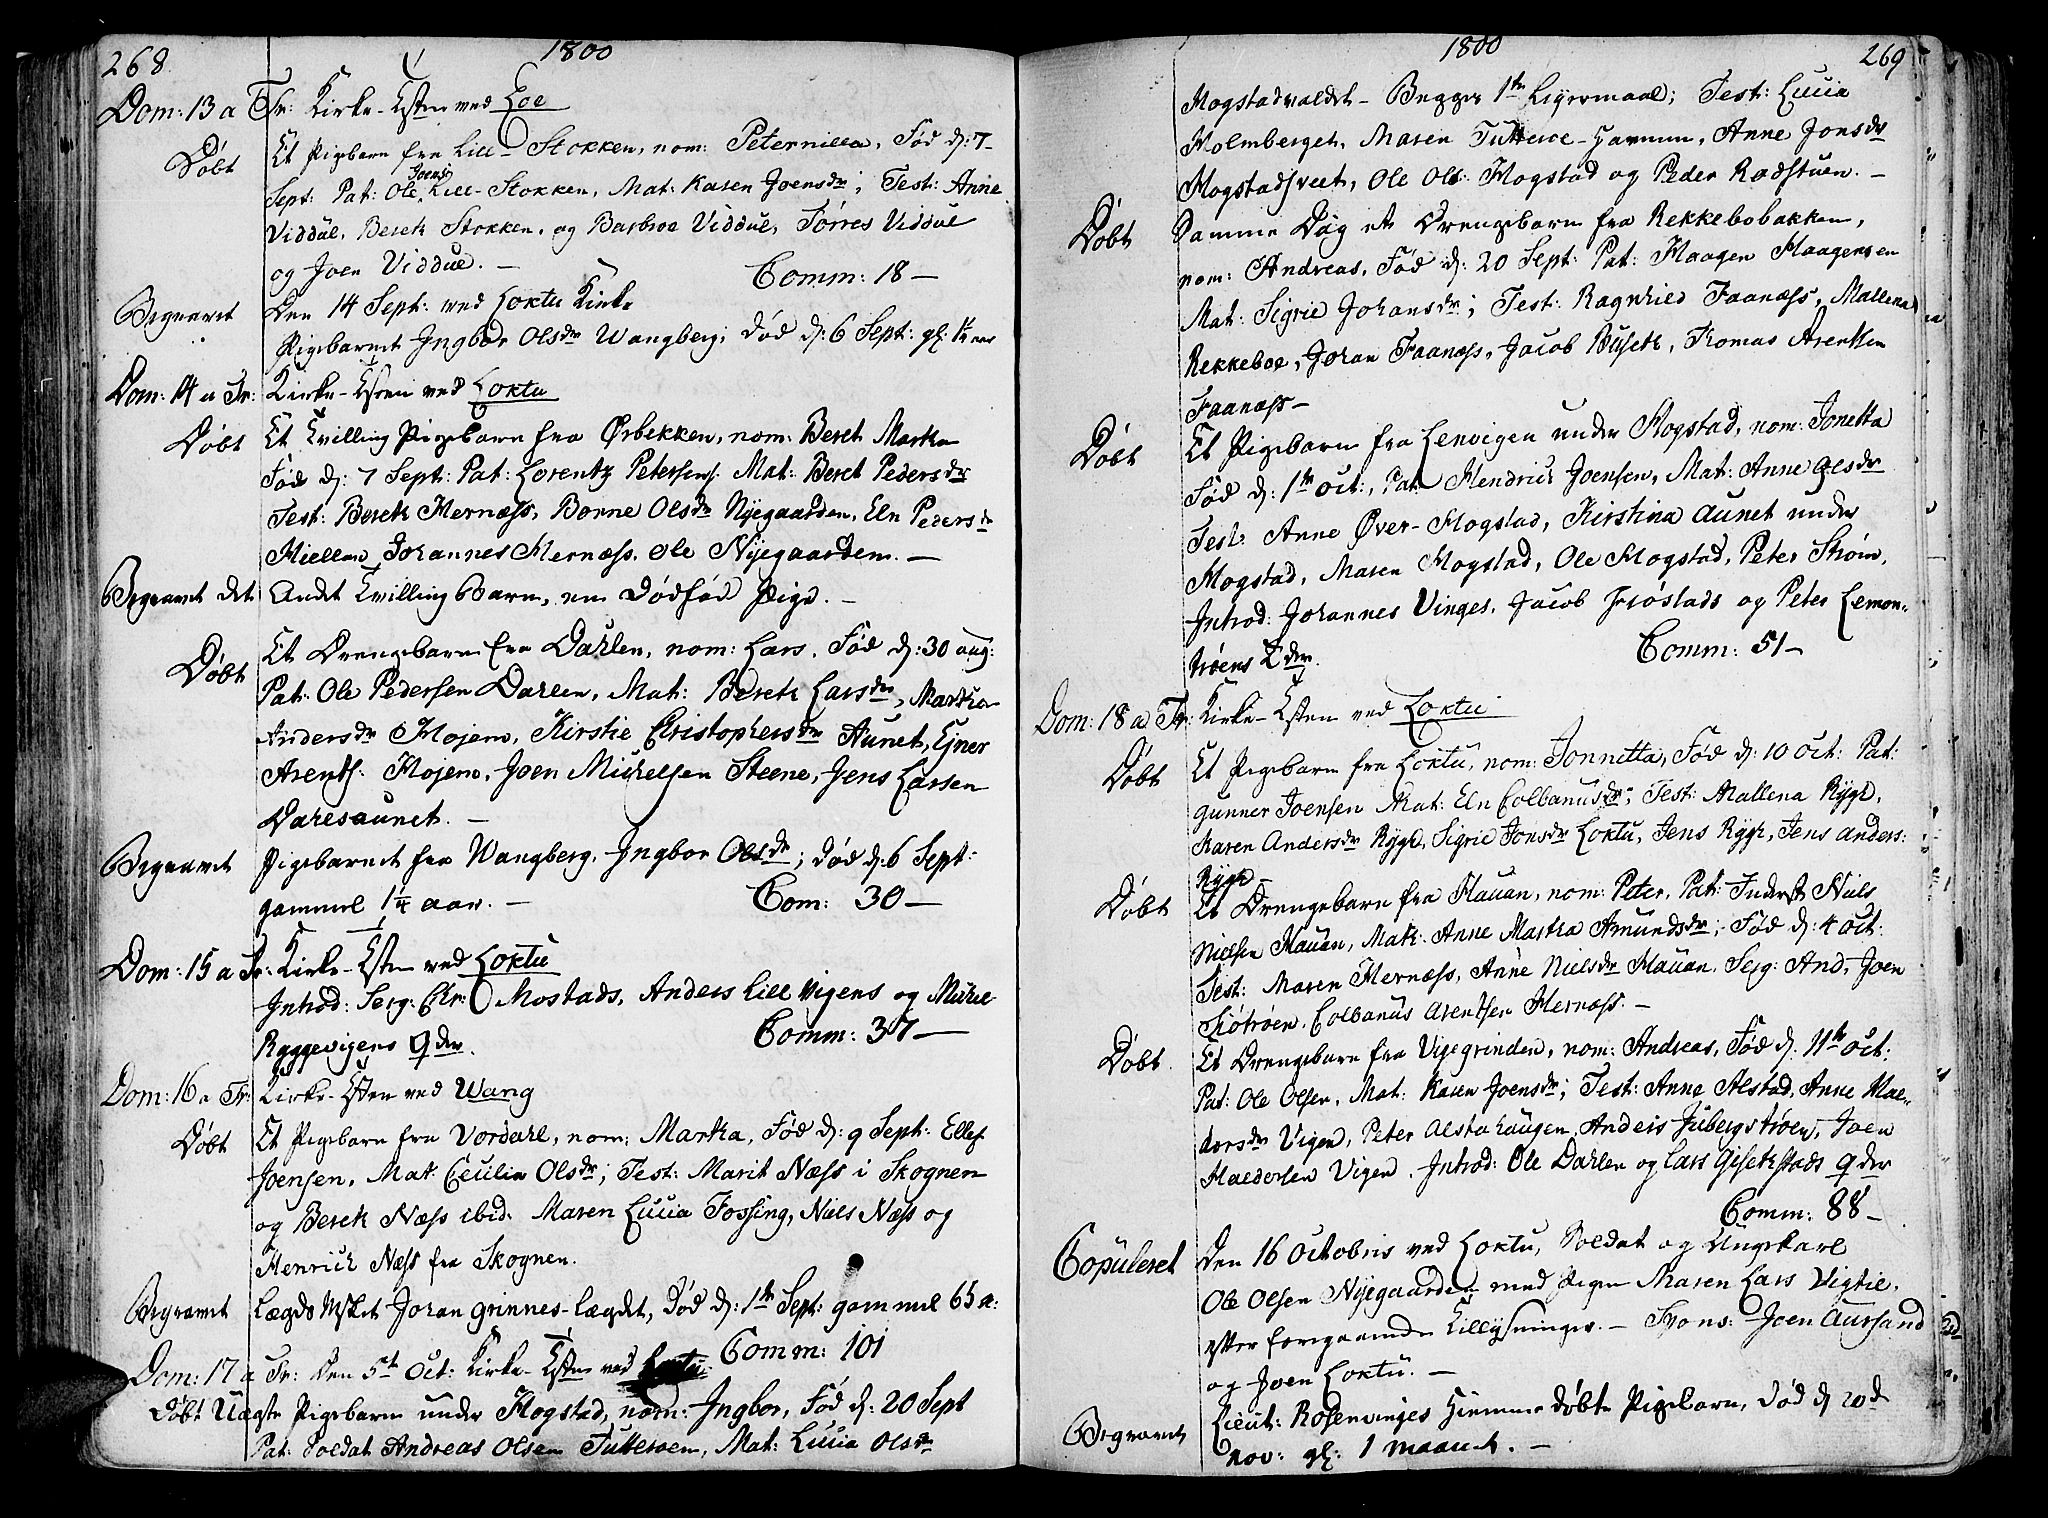 268.
1800
Dom: 13 a Tr: Kirke-Tsten ved Loe
Døbt
Et Pigebarn fra Lill-Stokken, nom: Peternilla, Fød d: 7
Sept: Pat: Ole Joens: Lill-Stokken, Mat: Karen Joensdr; Test: Anne
Viddül, Beret Stokken, og Barbroe Viddül, Torres Viddül
og Joen Viddül. –
Comm: 18 –
Begravet
Den 14 Sept: ved Loktu Kirke
Pigebarnet Ingbor Olsdr Wangberg; død d: 6 Sept: gl: 1¼ aar
Dom: 14 a Tr:
Kirke-Tsten ved Loktu
Døbt
Et Tvilling Pigebarn fra Ørbekken, nom: Beret Marta
Fød d: 7 Sept: Pat: Lorentz Petersens: Mat: Beret Pedersdr
Test: Beret Hernæss, Borne Olsdr Nyegaarden, Eln Pedersdr
Miellen Johannes Hernæss, Ole Nyegaarden. –
Begravet det
Andet Tvilling Barn, en Dødfød Pige. –
Døbt
Et Drengebarn fra Dahlen, nom: Lars, Fød d: 30 aug:
Pat: Ole Pedersen Dahlen, Mat: Beret Larsdr, Martha
Andersdr Mojem, Kirstie Christophersdr Aunet, Ejner
Arents: Hojem, Joen Michelsen Steene, Jens Larsen
Dalesaunet. –
Begravet
Pigebarnet fra Wangberg, Ingbor Olsdr; død d: 6 Sept:
gammel 1¼ aar. –
Com: 30 –
Dom: 15 a Tr:
Kirke-Tsten ved Loktu
Introd: Serg: Chr: Mostads, Anders Lill Vigens og Michel
Ryggevigens qder.
Comm: 37 –
Dom: 16 a Tr:
Kirke-Tsten ved Wang
Døbt
Et Pigebarn fra Vordahl, nom: Marta, Fød d: 9 Sept: Ellef
Joensen, Mat: Cecilia Olsdr; Test: Marit Næss i Skognen
og Beret Næss ibid: Maren Lucia Fossing, Niels Næss og
Henrich Næss fra Skognen.
Begravet
Lægds Johan Grinnes-Lægdet, Død d: 1te Sept: gammel 65 a:
Comm: 101
Dom: 17 a Tr:
Den 5te Oct: Kirke-Tsten ved Loktu
Døbt
Uægte Pigebarn under Mogstad, nom: Ingbor, Fød d: 20 Sept
Pat: Soldat Andreas Olsen Tutteroen, Mat: Lucia Olsdr
1800
269
Mogstadvaldet – Begges 1te Leyermaal; Test: Lucia
Holmberget, Maren Tutteroe-Hammen, Anne Jonsdr
Mogstadsveet, Ole Ols: Mogstad og Peder Rødstuen. –
Døbt
Samme Dag et Drengebarn fra Rekkebobakken,
nom: Andreas, Fød d: 20 Sept: Pat: Haagen Haagensen
Mat: Sigrie Johansdr; Test: Ragnhild Faanæss, Mallena
Rekkeboe, Johan Faanæss, Jacob Büseth, Tomas Arentsen
Faanæss –
Døbt
Et Pigebarn fra Lenvigen under Mogstad, nom: Jonetta
Fød d: 1te Oct:, Pat: Hendrich Joensen, Mat: Anne Olsdr
Test: Anne Øver-Mogstad, Kirstina Aunet under
Mogstad, Maren Mogstad, Ole Mogstad, Peter Strøm,
Introd: Johannes Vinges, Jacob Frøstads og Peter Lemon-
trøens qder.
Comm: 51 –
Dom: 18 a Tr:
Kirke-Tsten ved Loktu
Døbt
Et Pigebarn fra Loktu, nom: Jonnetta, Fød d: 10 Oct: Pat:
Gunner Joensen Mat: Eln Colbanusdr; Test: Mallena Rygh,
Karen Andersdr Rygh, Sigrie Jonsdr Loktu, Jens Rygh, Jens Anders:
Rygh –
Døbt
Et Drengebarn fra Hauan, nom: Peter, Pat: Inderst Niels
Nielsen Hauan, Mat: Anne Marta Amundsdr; Fød d: 4 Oct:
Test: Maren Hernæss, Anne Nielsdr Hauan, Serg: And, Joen
Colbanus Arentsen Hernæss. –
Døbt
Et Drengebarn fra Vigegrinden, nom: Andreas, Fød d: 11te Oct:
Pat: Ole Olsen, Mat: Karen Joensdr; Test: Anne Alstad, Anne Hal-
dorsdr Vigen, Peter Alstahaugen, Anders Jubergstrøen, Joen
Haldersen Vigen. Introd: Ole Dahlen og Lars Gisethstads qder
Comm: 88 –
Copuleret
Den 16 Octobris ved Loktu, Soldat og Ungkarl
Ole Olsen Nyegaarden med Pigen Maren Lars Vigtil,
efter foregaaende Tillysninger. – Spons: Joen Aursand
og Joen Loktu. –
Begravet
Lieut: Rosenvinges Hiemmedøbte Pigebarn, død d 20d
nov: gl: 1 maanet. –